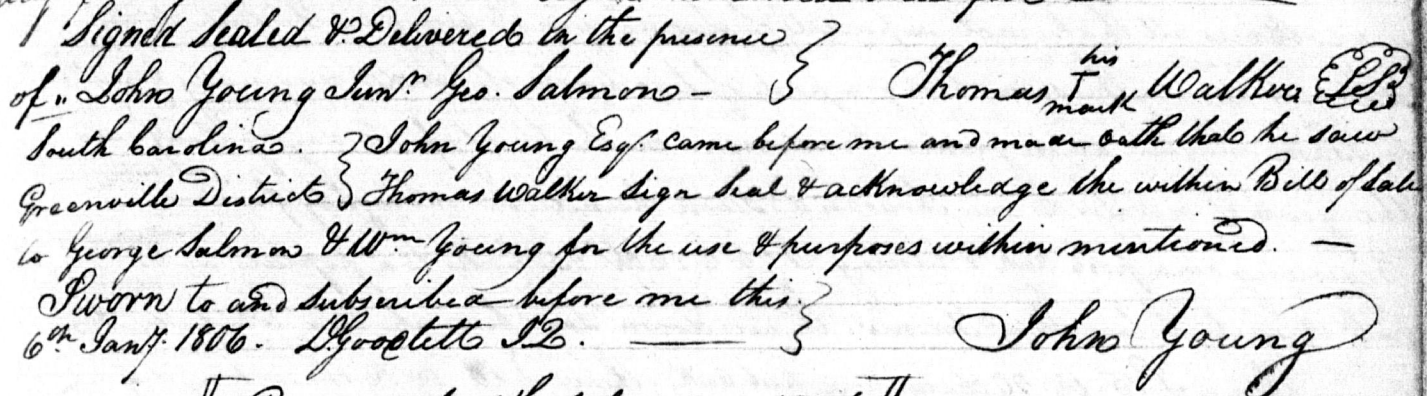 Signed Sealed & Delivered in the presence
of " John Young Junr. Geo. Salmon - } Thomas his T mark Walker LS
South Carolina. } John Young Esqr. came before me and made oath that he saw
Greenville District } Thomas Walker Sign Seal & acknowledge the within Bill of Sale
to George Salmon & Wm Young for the use & purposes within mentioned. —
Sworn to and Subscribed before me this }
6th Jany. 1806. D Goodlett J Q. — John Young